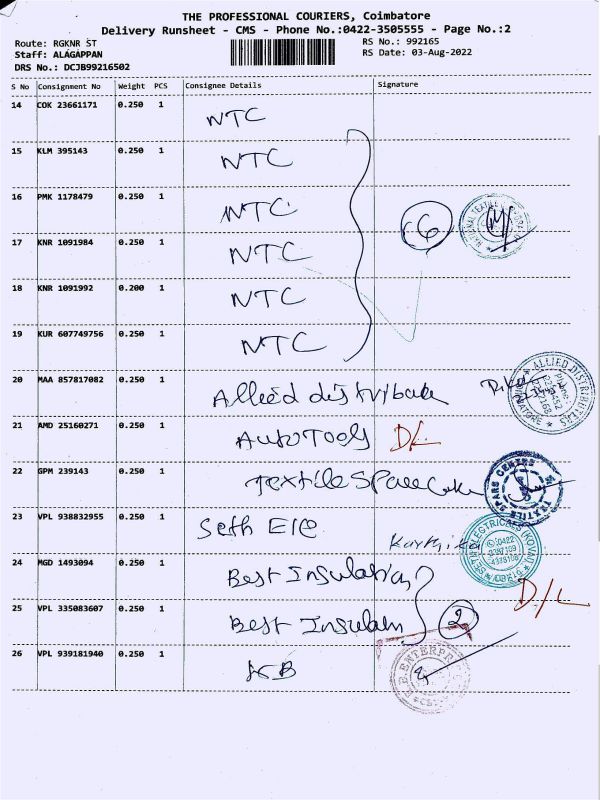 THE PROFESSIONAL COURIERS, Coimbatore
Delivery Runsheet - CMS - Phone No.:0422-3505555 - Page No.:2
Route: RGKNR ST
RS No.: 992165
Staff: ALAGAPPAN
RS Date: 03-Aug-2022
DRS No.: DCJB99216502
S No Consignment No Weight PCS Consignee Details Signature
14 COK 23661171 0.250 1 NTC
15 KLM 395143 0.250 1 NTC
16 PMK 1178479 0.250 1 NTC
6
17 KNR 1091984 0.250 1 NTC
18 KNR 1091992 0.200 1 NTC
19 KUR 607749756 0.250 1 NTC
20 MAA 857817082 0.250 1 Allied distribute
ALLIED DISTRIBUTORS
21 AMD 25160271 0.250 1 AUTO TOOLS D/L
22 GPM 239143 0.250 1 Textile Spare
TEXTILE SPARS CENTRE
23 VPL 938832955 0.250 1 Seth Ele
Karthika
24 MGD 1493094 0.250 1 Best Insulation
D/L
25 VPL 335083607 0.250 1 Best Insulam 2
26 VPL 939181940 0.250 1 KB
ENTERPR